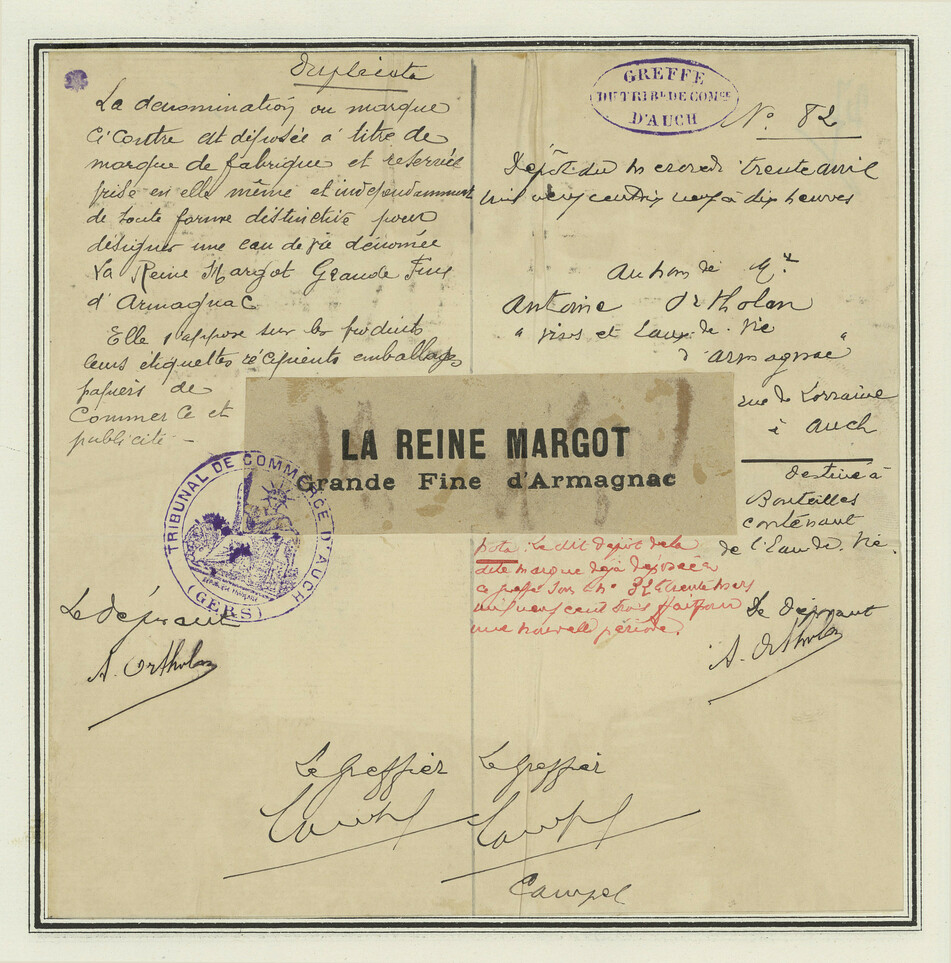 Duplicata
La denomination ou marque
ci contre est déposée à titre de
marque de fabrique et reservée
prise en elle même et independamment
de toute forme distinctive pour
désigner une eau de vie dénomée
La Reine Margot Grande Fine
d'Armagnac
Elle s'appose sur les produits
leurs étiquettes récipients emballages
papiers de
Commerce et
publicité -
GREFFE
DU TRIBᴸ DE COMᶜᴱ
D'AUCH
N° 82
Dépôt du mercredi trente avril
mil neuf cent dix neuf à dix heures
Au nom de Mʳ
Antoine Ortholan
" Vins et Eaux de Vie
d'armagnac "
rue de Lorraine
à Auch
destiné à
Bouteilles
contenant
de l'Eau de Vie
LA REINE MARGOT
Grande Fine d'Armagnac
TRIBUNAL DE COMMERCE D'AUCH
(GERS)
nota : Le dit depot de la
dite marque deja déposée
ce greffe sous le n° 32 le trente Mars
mil neuf cent trois fait pour
une nouvelle période.
Le déposant
A. Ortholan
Le déposant
A. Ortholan
Le Greffier
Campel
Le Greffier
Campel
Campel